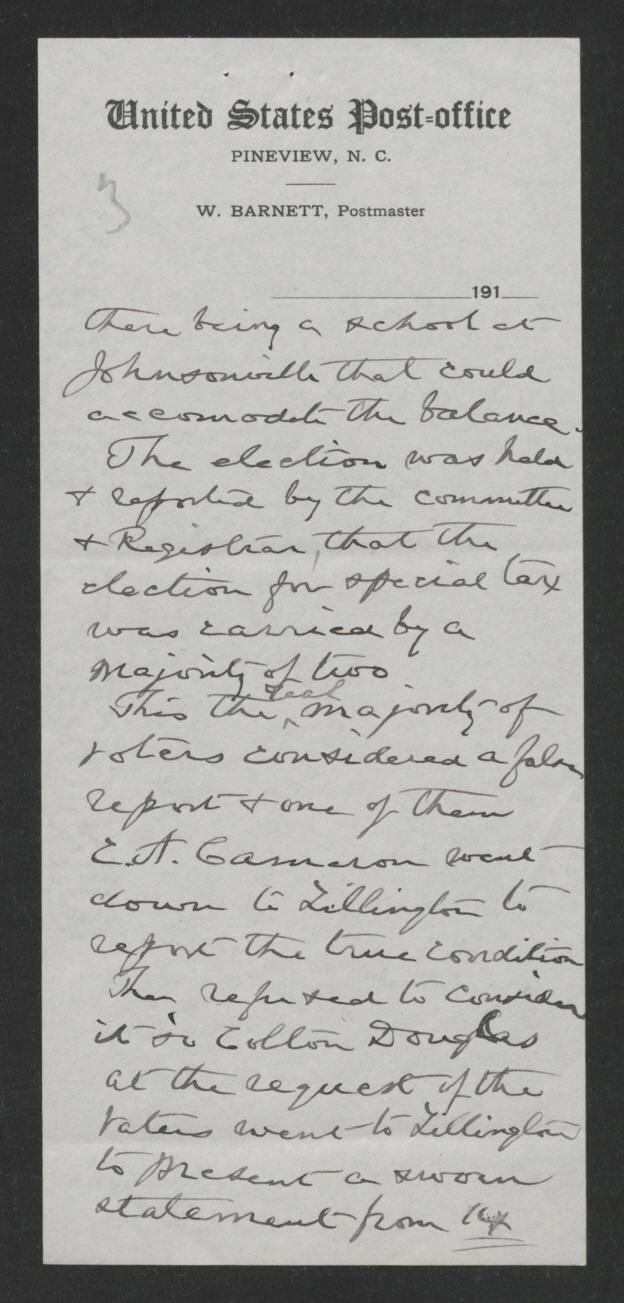 United States Post-office
PINEVIEW, N. C.
3
W. BARNETT, Postmaster
191
there being a school at
Johnsonville that could
accomodate the balance.
The election was held
& reported by the committee
& Registrar, that the
election for special tax
was carried by a
majority of two
This the real majority of
voters considered a false
report & one of them
E.A. Cameron went
down to Lillington to
report the true condition
They refused to consider
it so Colton Douglas
at the request of the
voters went to Lillington
to present a sworn
statement from